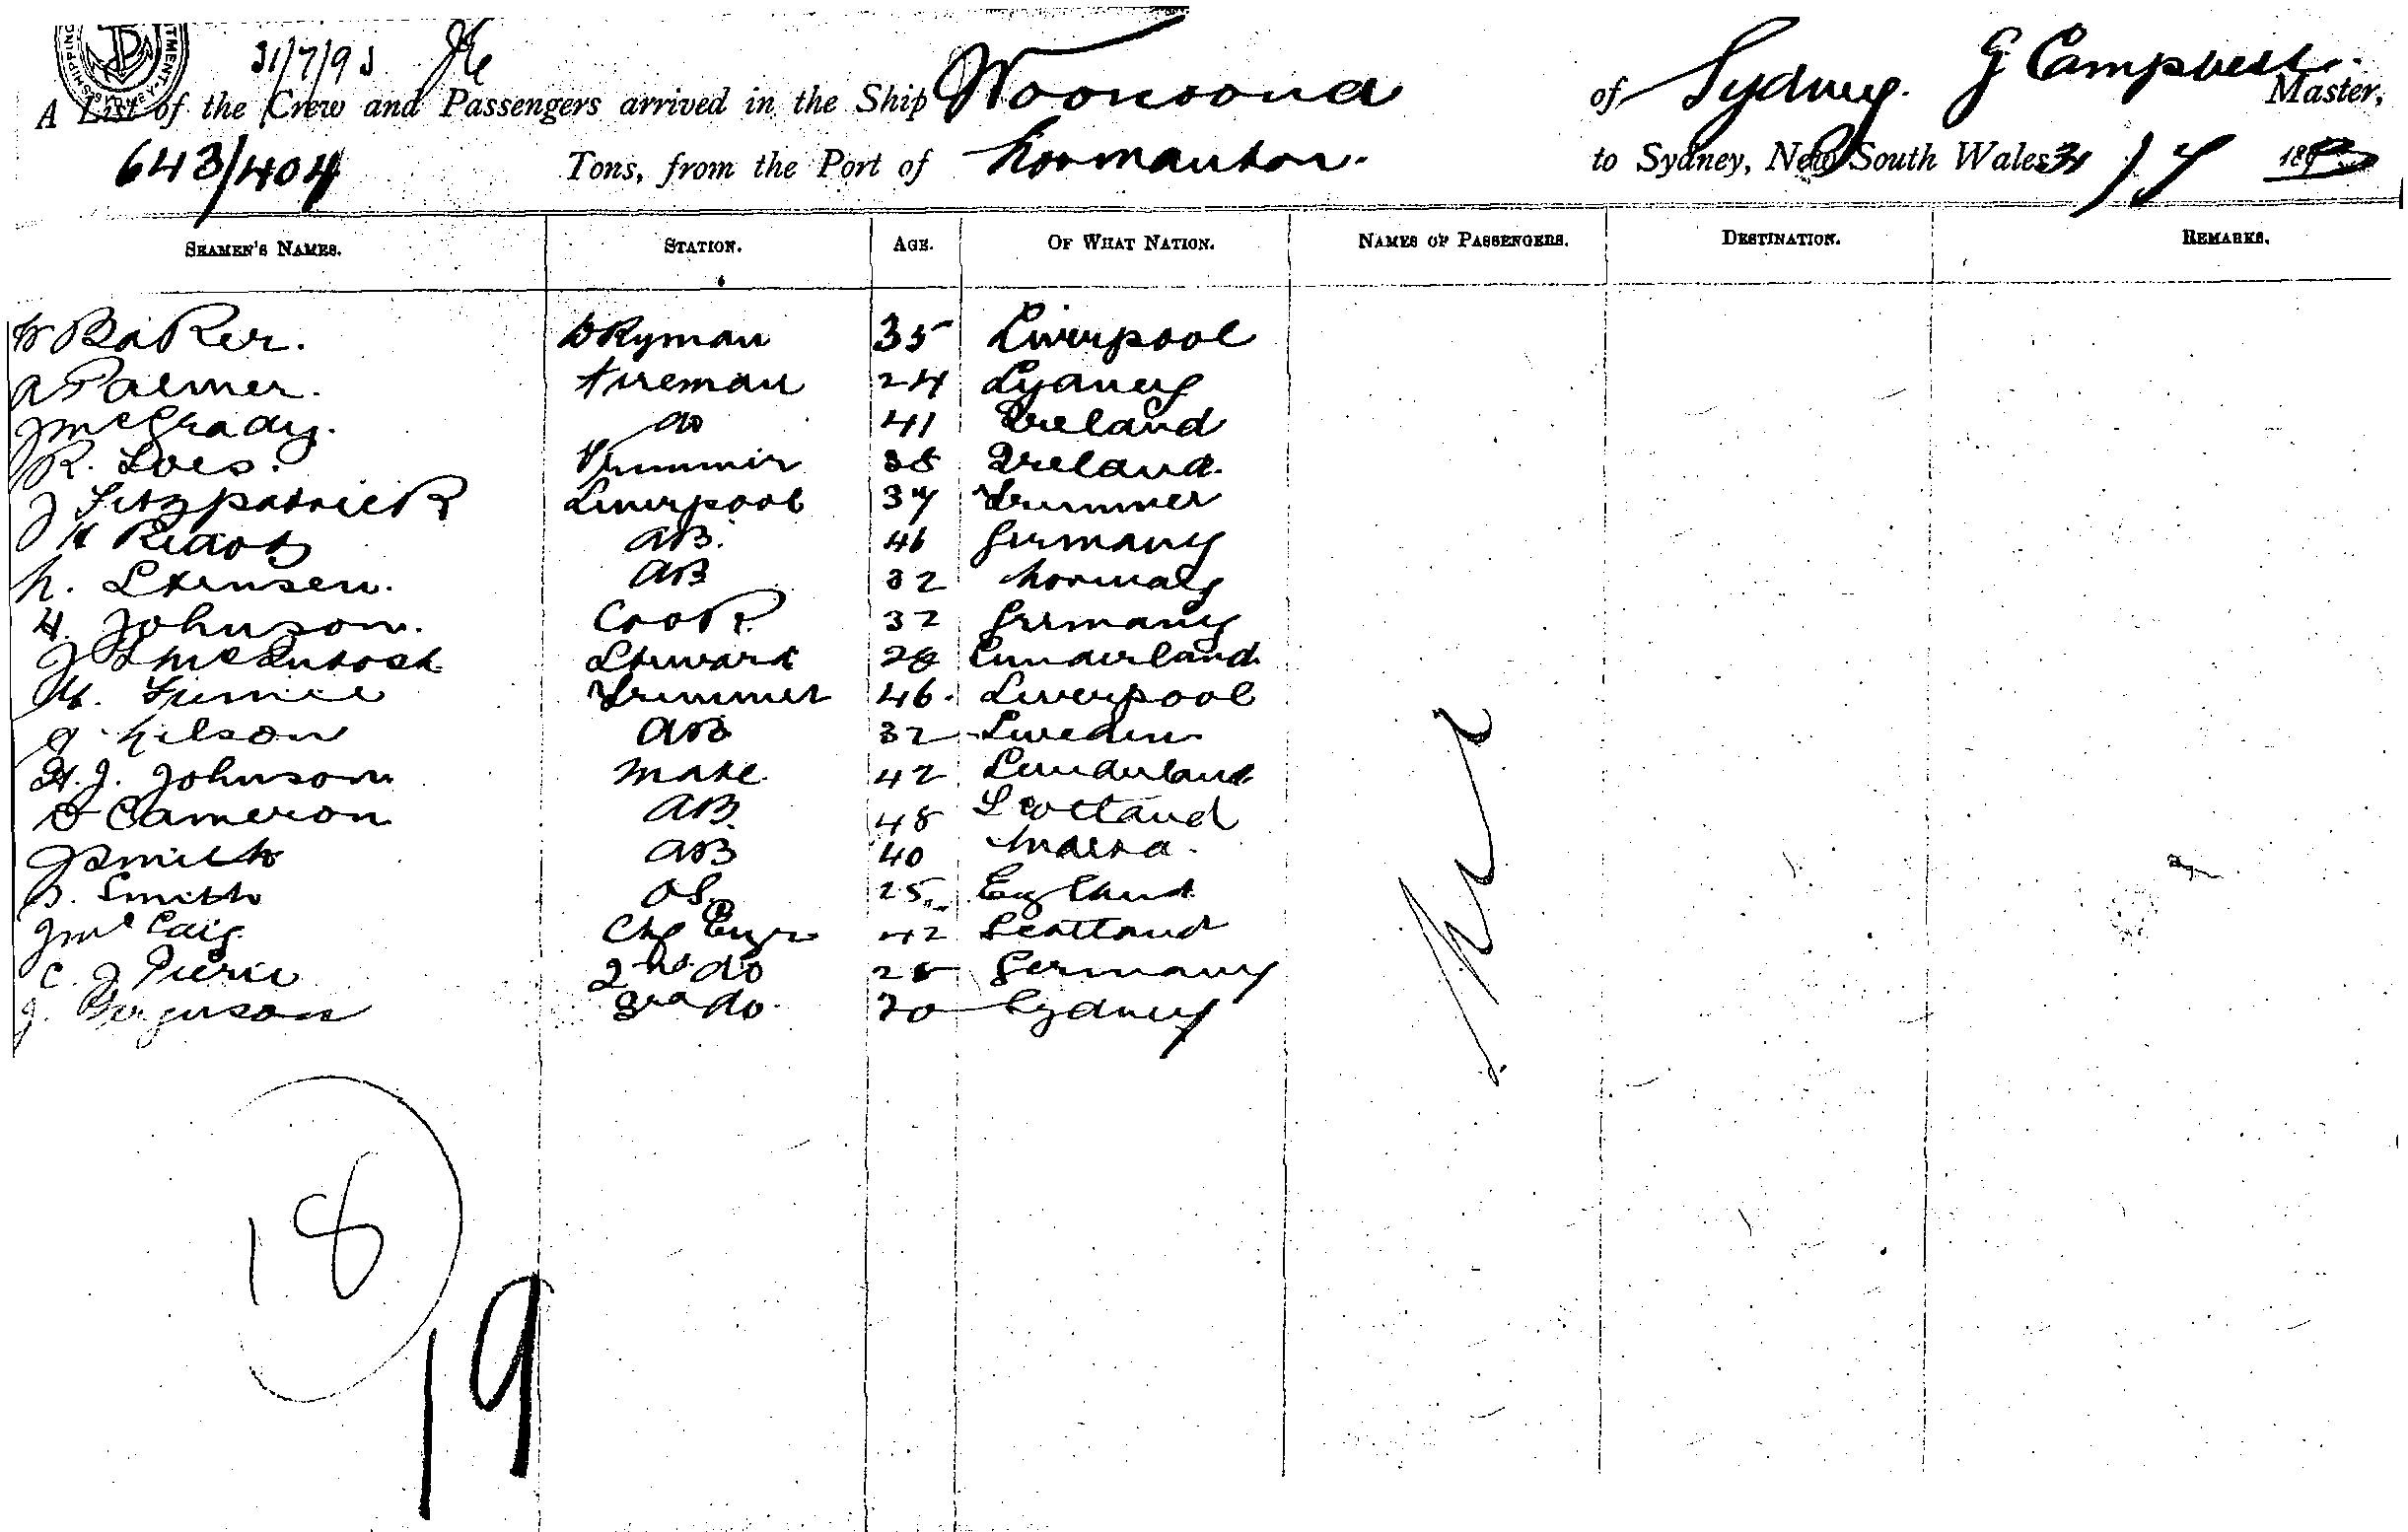 31/7/93
A List of the Crew and Passengers arrived in the Ship Woonoona of Sydney. J Campbell. Master,
643/404 Tons, from the Port of Normanton. to Sydney, New South Wales 31/7 1893
SEAMEN'S NAMES. STATION. AGE. OF WHAT NATION. NAMES OF PASSENGERS. DESTINATION. REMARKS.
W Baker. DKyman 35 Liverpool
A Palmer. Fireman 24 Sydney
J McGrady. do 41 Ireland
R. Loes. Trimmer 38 Ireland
J Fitzpatrick Liverpool 37 Trimmer
AB. 46 Germany
N. Stensen. AB 32 Norway
H. Johnson. Cook 32 Germany
J McIntosh Steward 28 Sunderland
Trimmer 46. Liverpool
Nilson AB 32 Sweden
H. J. Johnson Mate 42 Sunderland
D Cameron AB. 48 Scotland
J Smith AB 40 Malta.
S. Smith OS. 25 England
J McCaig Chf Engr 42 Scotland
C. J 2nd do 28 Germany
J. Ferguson 3rd do. 20 Sydney
Nil
18
19